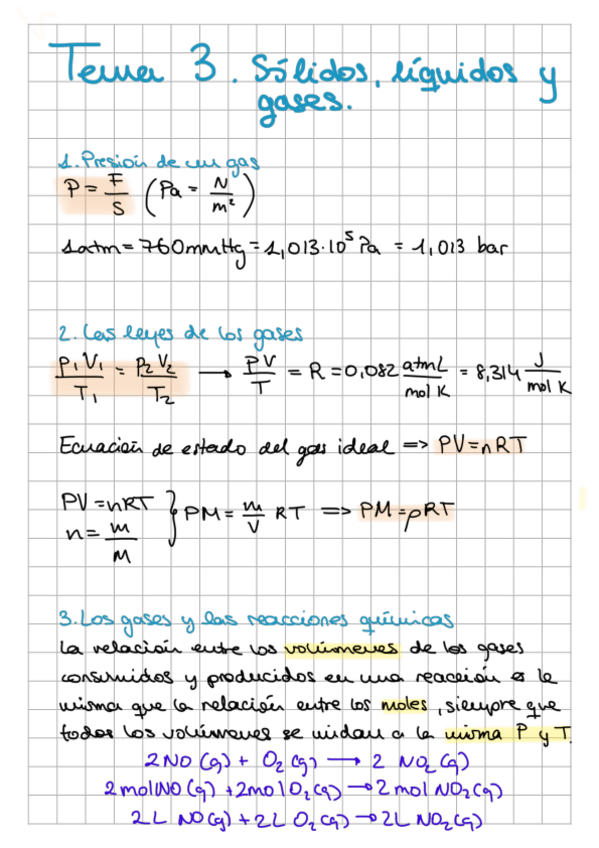 Tema 3. Sólidos, líquidos y
gases.
1. Presión de un gas
P = F/S (Pa = N/m²)
1atm = 760mmHg = 1,013·10⁵ Pa = 1,013 bar
2. Las leyes de los gases
P₁V₁/T₁ = P₂V₂/T₂ → PV/T = R = 0,082 atmL/mol K = 8,314 J/mol K
Ecuación de estado del gas ideal => PV=nRT
PV=nRT
n = m/M } PM = m/V RT => PM=ρRT
3. Los gases y las reacciones químicas
La relación entre los volúmenes de los gases
consumidos y producidos en una reacción es la
misma que la relación entre los moles, siempre que
todos los volúmenes se midan a la misma P y T.
2NO (g) + O₂ (g) → 2 NO₂ (g)
2 mol NO (g) + 2mol O₂ (g) → 2 mol NO₂ (g)
2L NO(g) + 2L O₂ (g) → 2L NO₂ (g)